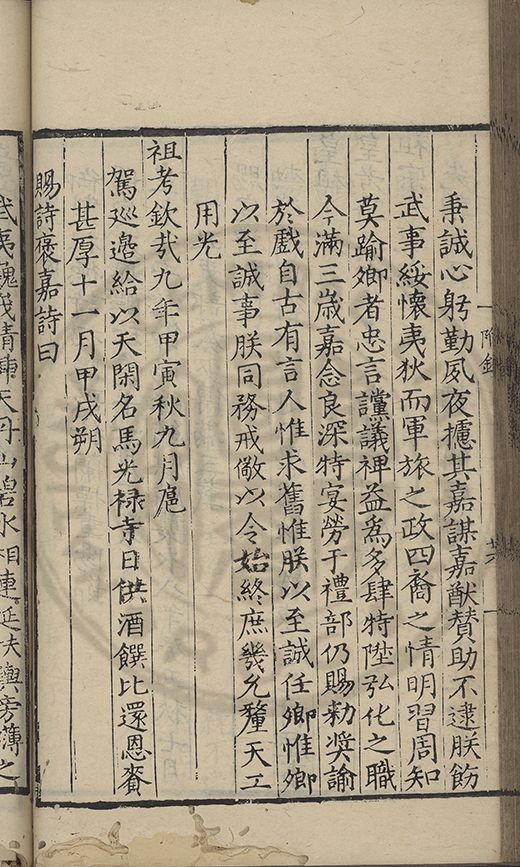 秉誠心躬勤夙夜攄其嘉謀嘉猷賛助不逮朕飭
武事綏懷夷狄而軍旅之政四裔之情明習周知
莫踰卿者忠言讜議裨益爲多肆特陞弘化之職
今滿三歲嘉念良深特宴勞于禮部仍賜勑奬諭
於戲自古有言人惟求舊惟朕以至誠任卿惟卿
以至誠事朕同務戒儆以令始終庶幾允釐天工
用光
祖考欽㢤九年甲寅秋九月扈
駕巡邉給以天閑名馬光禄寺日供酒饌比還恩賚
甚厚十一月甲戌朔
賜詩褒嘉詩曰
武夷巍峩倚庫天丹山碧水相連延扶輿旁薄之
附錄